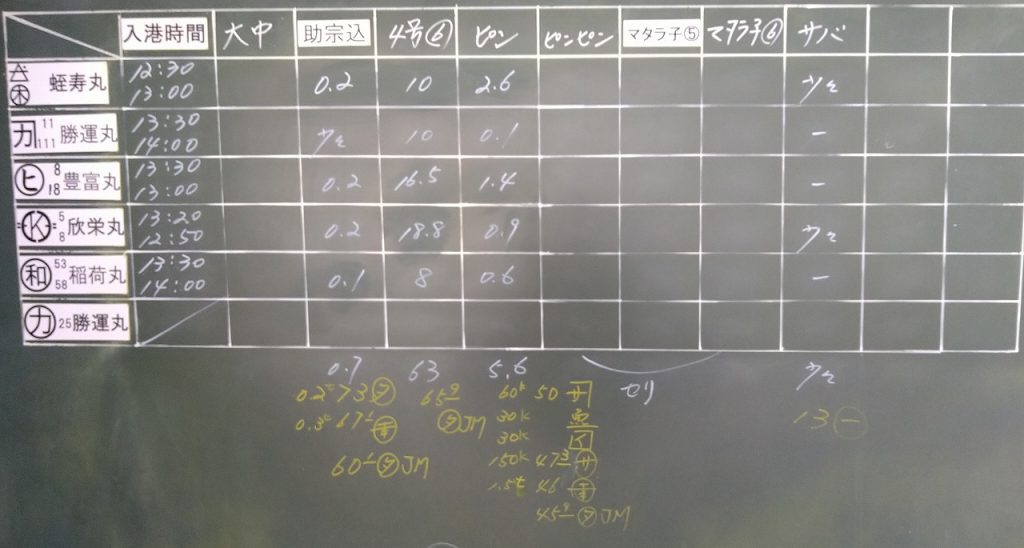 入港時間 大中 助宗込 4号⑥ ピン ピンピン マタラ子⑤ マタラ子⑥ サバ
蛭寿丸 12:30 13:00 0.2 10 2.6 少々
カ 11 111 勝運丸 13:30 14:00 少々 10 0.1 -
ヒ 8 18 豊富丸 13:30 13:00 0.2 16.5 1.4 -
K 5 8 欣栄丸 13:20 12:50 0.2 18.8 0.9 少々
㊑ 53 58 稲荷丸 13:30 14:00 0.1 8 0.6 -
カ 25 勝運丸
0.7 63 5.6 セリ 少々
0.2t 73 65 60k 50 サ 13 ㊀
0.3t 67 JM 30k
30k
60 JM 150k 47 サ
1.5t 46
45 JM